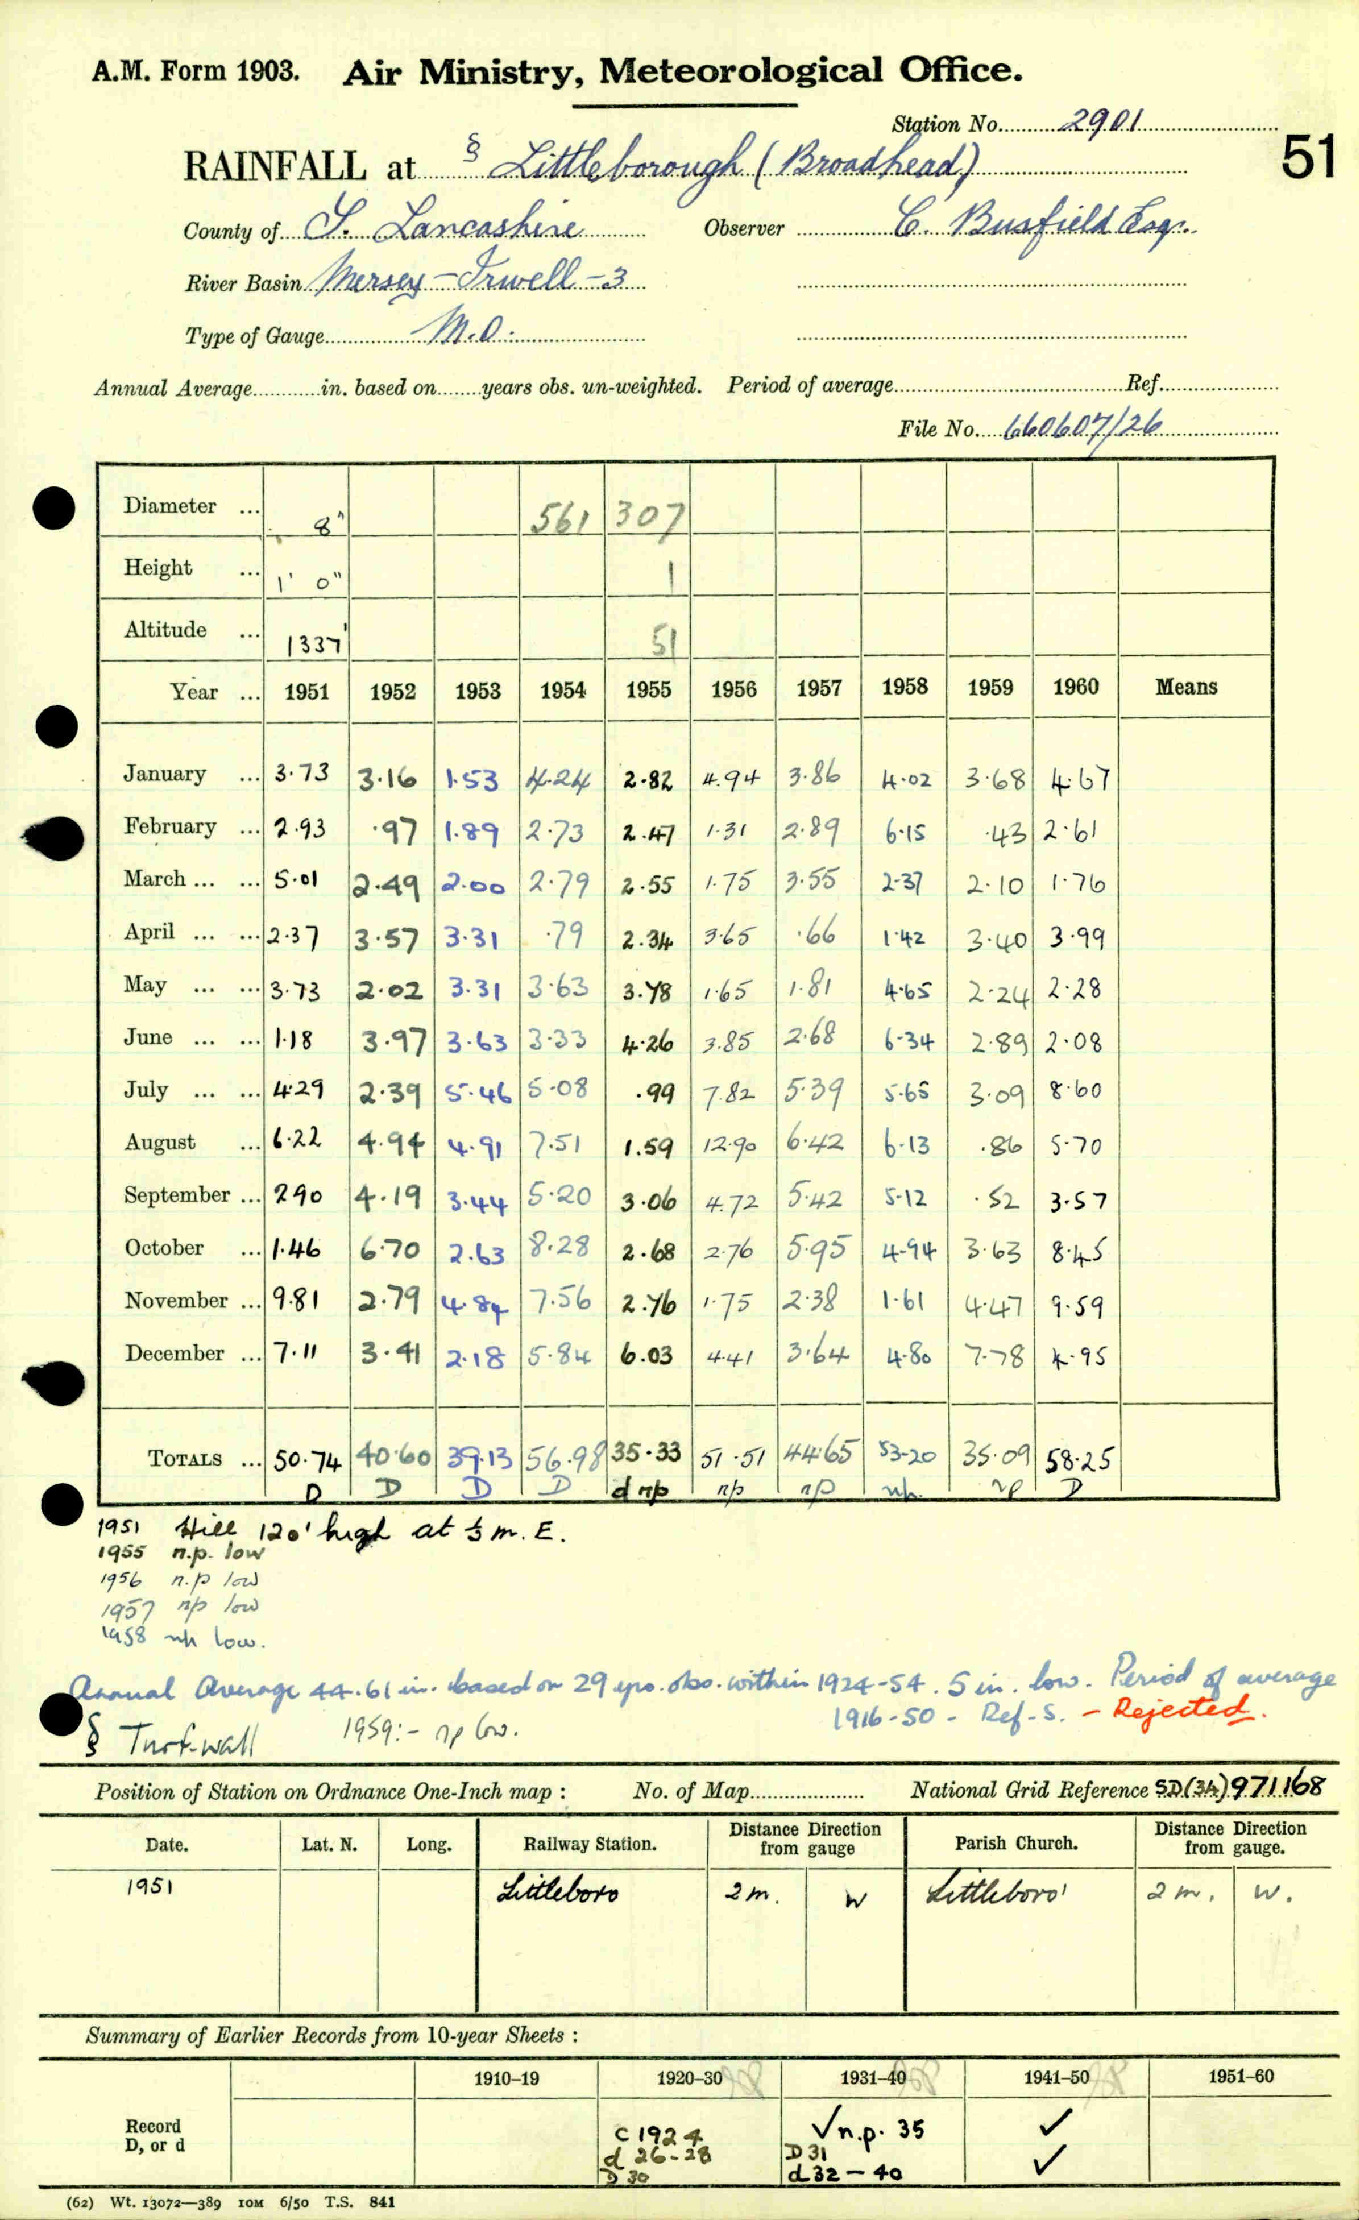 A.M. Form 1903. Air Ministry, Meteorological Office.
Station No. 2901
51
RAINFALL at § Littleborough (Broadhead)
County of S. Lancashire Observer C. Busfield Esqr.
River Basin Mersey - Irwell - 3
Type of Gauge M.O.
Annual Average in. based on years obs. un-weighted. Period of average Ref.
File No. 660607/26
Diameter ... 8" 561 307
Height ... 1' 0" 1
Altitude ... 1337' 51
Year ... 1951 1952 1953 1954 1955 1956 1957 1958 1959 1960 Means
January ... 3.73 3.16 1.53 4.24 2.82 4.94 3.86 4.02 3.68 4.67
February ... 2.93 .97 1.89 2.73 2.47 1.31 2.89 6.15 .43 2.61
March ... ... 5.01 2.49 2.00 2.79 2.55 1.75 3.55 2.37 2.10 1.76
April ... ... 2.37 3.57 3.31 .79 2.34 3.65 .66 1.42 3.40 3.99
May ... ... 3.73 2.02 3.31 3.63 3.78 1.65 1.81 4.65 2.24 2.28
June ... ... 1.18 3.97 3.63 3.33 4.26 3.85 2.68 6.34 2.89 2.08
July ... ... 4.29 2.39 5.46 5.08 .99 7.82 5.39 5.65 3.09 8.60
August ... 6.22 4.94 4.91 7.51 1.59 12.90 6.42 6.13 .86 5.70
September ... 2.90 4.19 3.44 5.20 3.06 4.72 5.42 5.12 .52 3.57
October ... 1.46 6.70 2.63 8.28 2.68 2.76 5.95 4.94 3.63 8.45
November ... 9.81 2.79 4.84 7.56 2.76 1.75 2.38 1.61 4.47 9.59
December ... 7.11 3.41 2.18 5.84 6.03 4.41 3.64 4.80 7.78 4.95
TOTALS ... 50.74 40.60 39.13 56.98 35.33 51.51 44.65 53.20 35.09 58.25
D D D D d np np np np np D
1951 Hill 120' high at ½ m. E.
1955 n.p. low
1956 n.p low
1957 np low
1958 np low.
Annual Average 44.61 in. based on 29 yrs. obs. within 1924-54. 5 in. low. Period of average
1916-50 - Ref. S. - Rejected.
§ Turf-wall 1959:- np low.
Position of Station on Ordnance One-Inch map : No. of Map National Grid Reference SD(34)971168
Date. Lat. N. Long. Railway Station. Distance from gauge Direction Parish Church. Distance from gauge. Direction
1951 Littleboro 2 m. W Littleboro' 2 m. W.
Summary of Earlier Records from 10-year Sheets :
1910–19 1920–30 1931–40 1941–50 1951–60
Record D, or d
C 1924 ✓ n.p. 35 ✓
d 26-28 D 31 ✓
D 30 d 32 - 40
(62) Wt. 13072—389 10M 6/50 T.S. 841